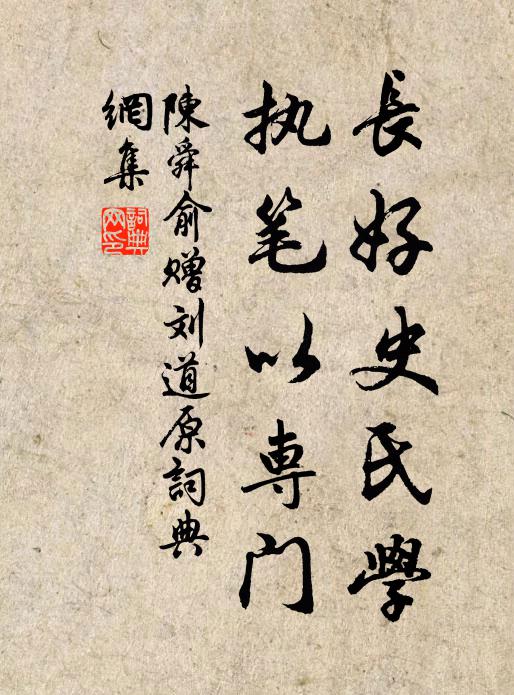 長好史氏學
执笔以專门
陳舜俞赠刘道原詞典
網集
詞典
网印